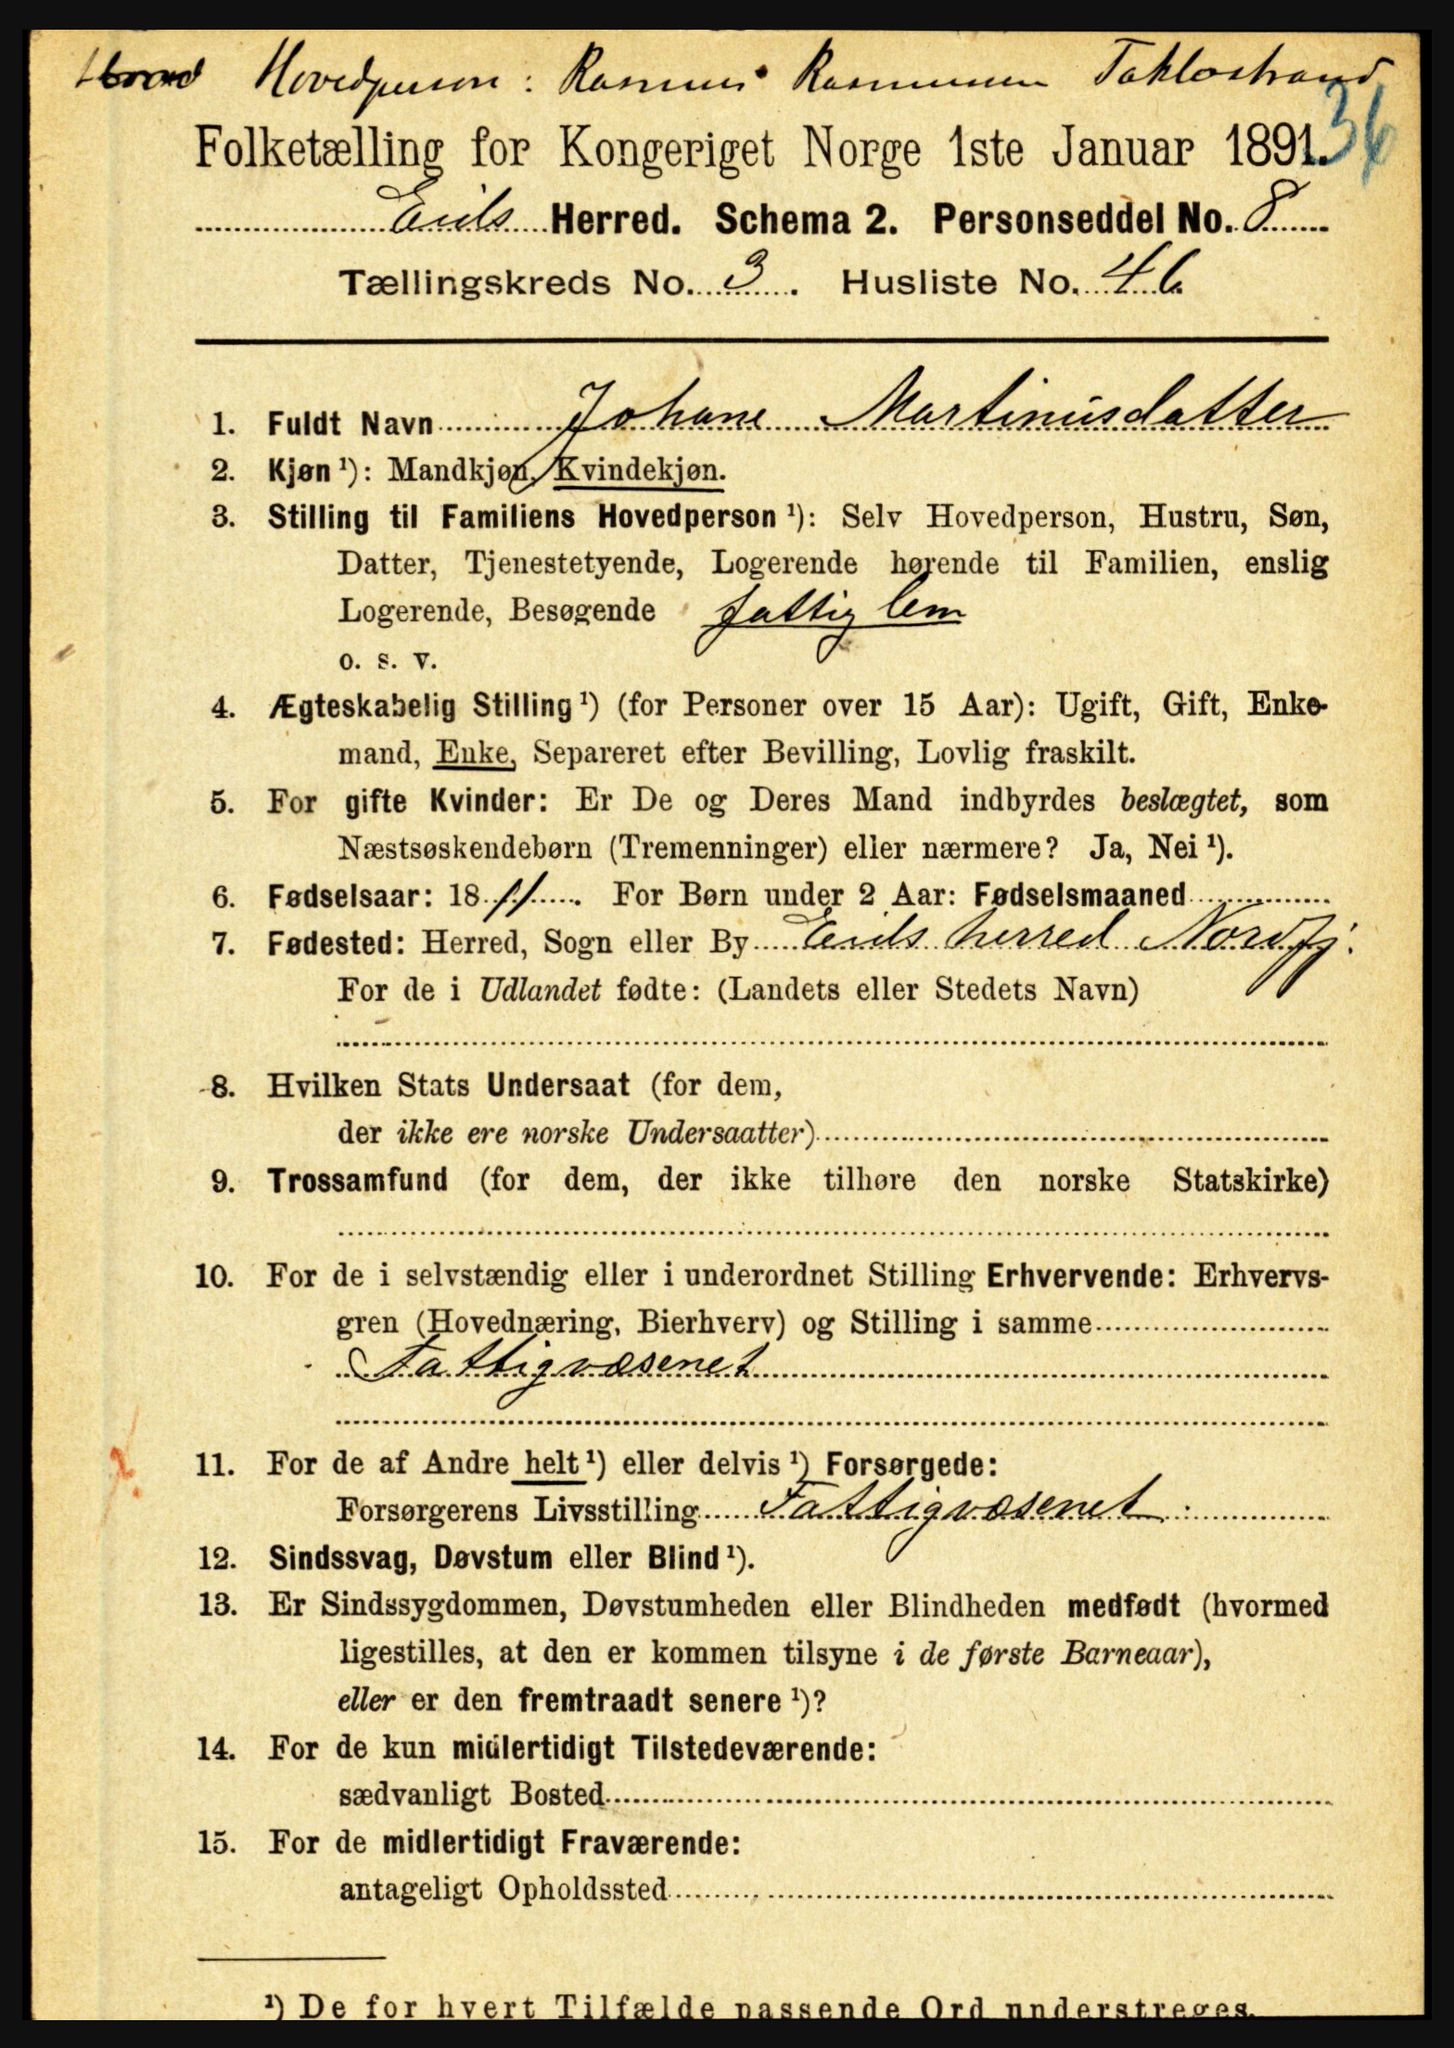 Hovedperson: Rasmus Rasmussen Taklostrand
36
Folketælling for Kongeriget Norge 1ste Januar 1891.
Eids Herred. Schema 2. Personseddel No. 8
Tællingskreds No. 3. Husliste No. 46
1. Fuldt Navn Johane Martinusdatter
2. Kjøn ¹): Mandkjøn, Kvindekjøn.
3. Stilling til Familiens Hovedperson ¹): Selv Hovedperson, Hustru, Søn,
Datter, Tjenestetyende, Logerende hørende til Familien, enslig
Logerende, Besøgende fattiglem
o. s. v.
4. Ægteskabelig Stilling ¹) (for Personer over 15 Aar): Ugift, Gift, Enke-
mand, Enke, Separeret efter Bevilling, Lovlig fraskilt.
5. For gifte Kvinder: Er De og Deres Mand indbyrdes beslægtet, som
Næstsøskendebørn (Tremenninger) eller nærmere? Ja, Nei ¹).
6. Fødselsaar: 1811. For Børn under 2 Aar: Fødselsmaaned
7. Fødested: Herred, Sogn eller By Eids herred Nordfj.
For de i Udlandet fødte: (Landets eller Stedets Navn)
8. Hvilken Stats Undersaat (for dem,
der ikke ere norske Undersaatter)
9. Trossamfund (for dem, der ikke tilhøre den norske Statskirke)
10. For de i selvstændig eller i underordnet Stilling Erhvervende: Erhvervs-
gren (Hovednæring, Bierhverv) og Stilling i samme
Fattigvæsenet
11. For de af Andre helt ¹) eller delvis ¹) Forsørgede:
Forsørgerens Livsstilling Fattigvæsenet
12. Sindssvag, Døvstum eller Blind ¹).
13. Er Sindssygdommen, Døvstumheden eller Blindheden medfødt (hvormed
ligestilles, at den er kommen tilsyne i de første Barneaar),
eller er den fremtraadt senere ¹)?
14. For de kun midlertidigt Tilstedeværende:
sædvanligt Bosted
15. For de midlertidigt Fraværende:
antageligt Opholdssted
¹) De for hvert Tilfælde passende Ord understreges.